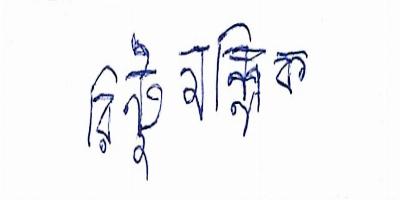 রিন্টু মল্লিক